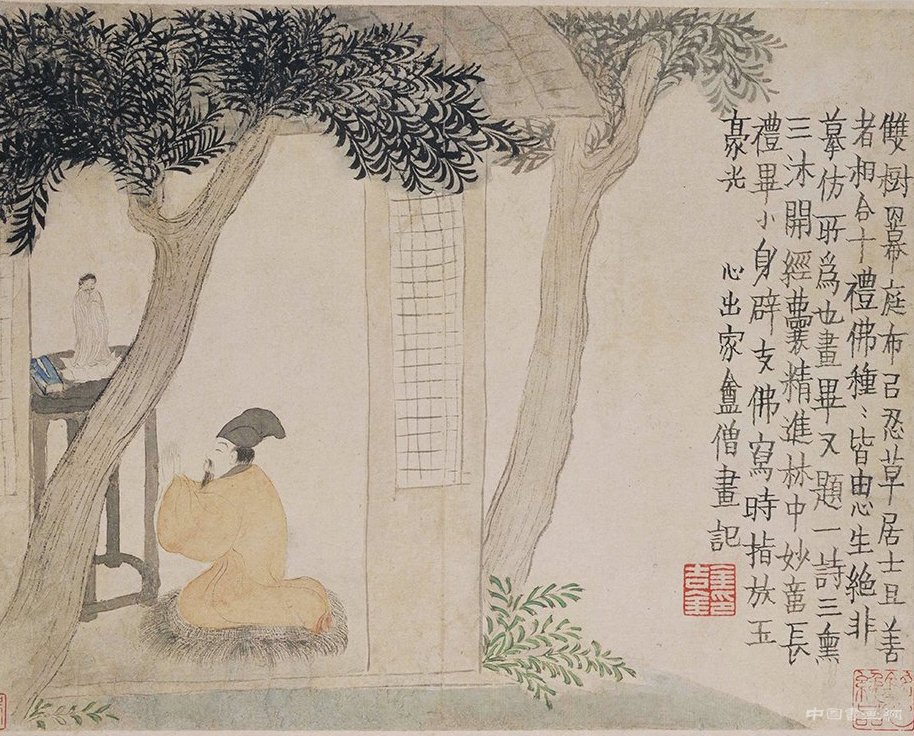 雙樹羃庭布㠯忍草居士具善
者相合十禮佛種〻皆由心生絕非
摹仿所爲也畫畢又題一詩三熏
三沐開經囊精進林中妙意長
禮畢小身辟支佛寫時指放玉
豪光　心出家盦僧畫記
金吉金印
中国书画网